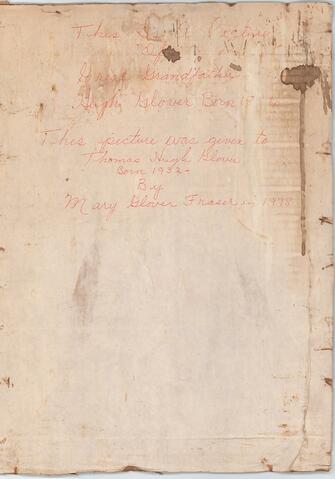 This Is A Picture
Of
Great Grandfather
Hugh Glover Born
This picture was given to
Thomas Hugh Glover
Born 1932-
By
Mary Glover Fraser in 1998